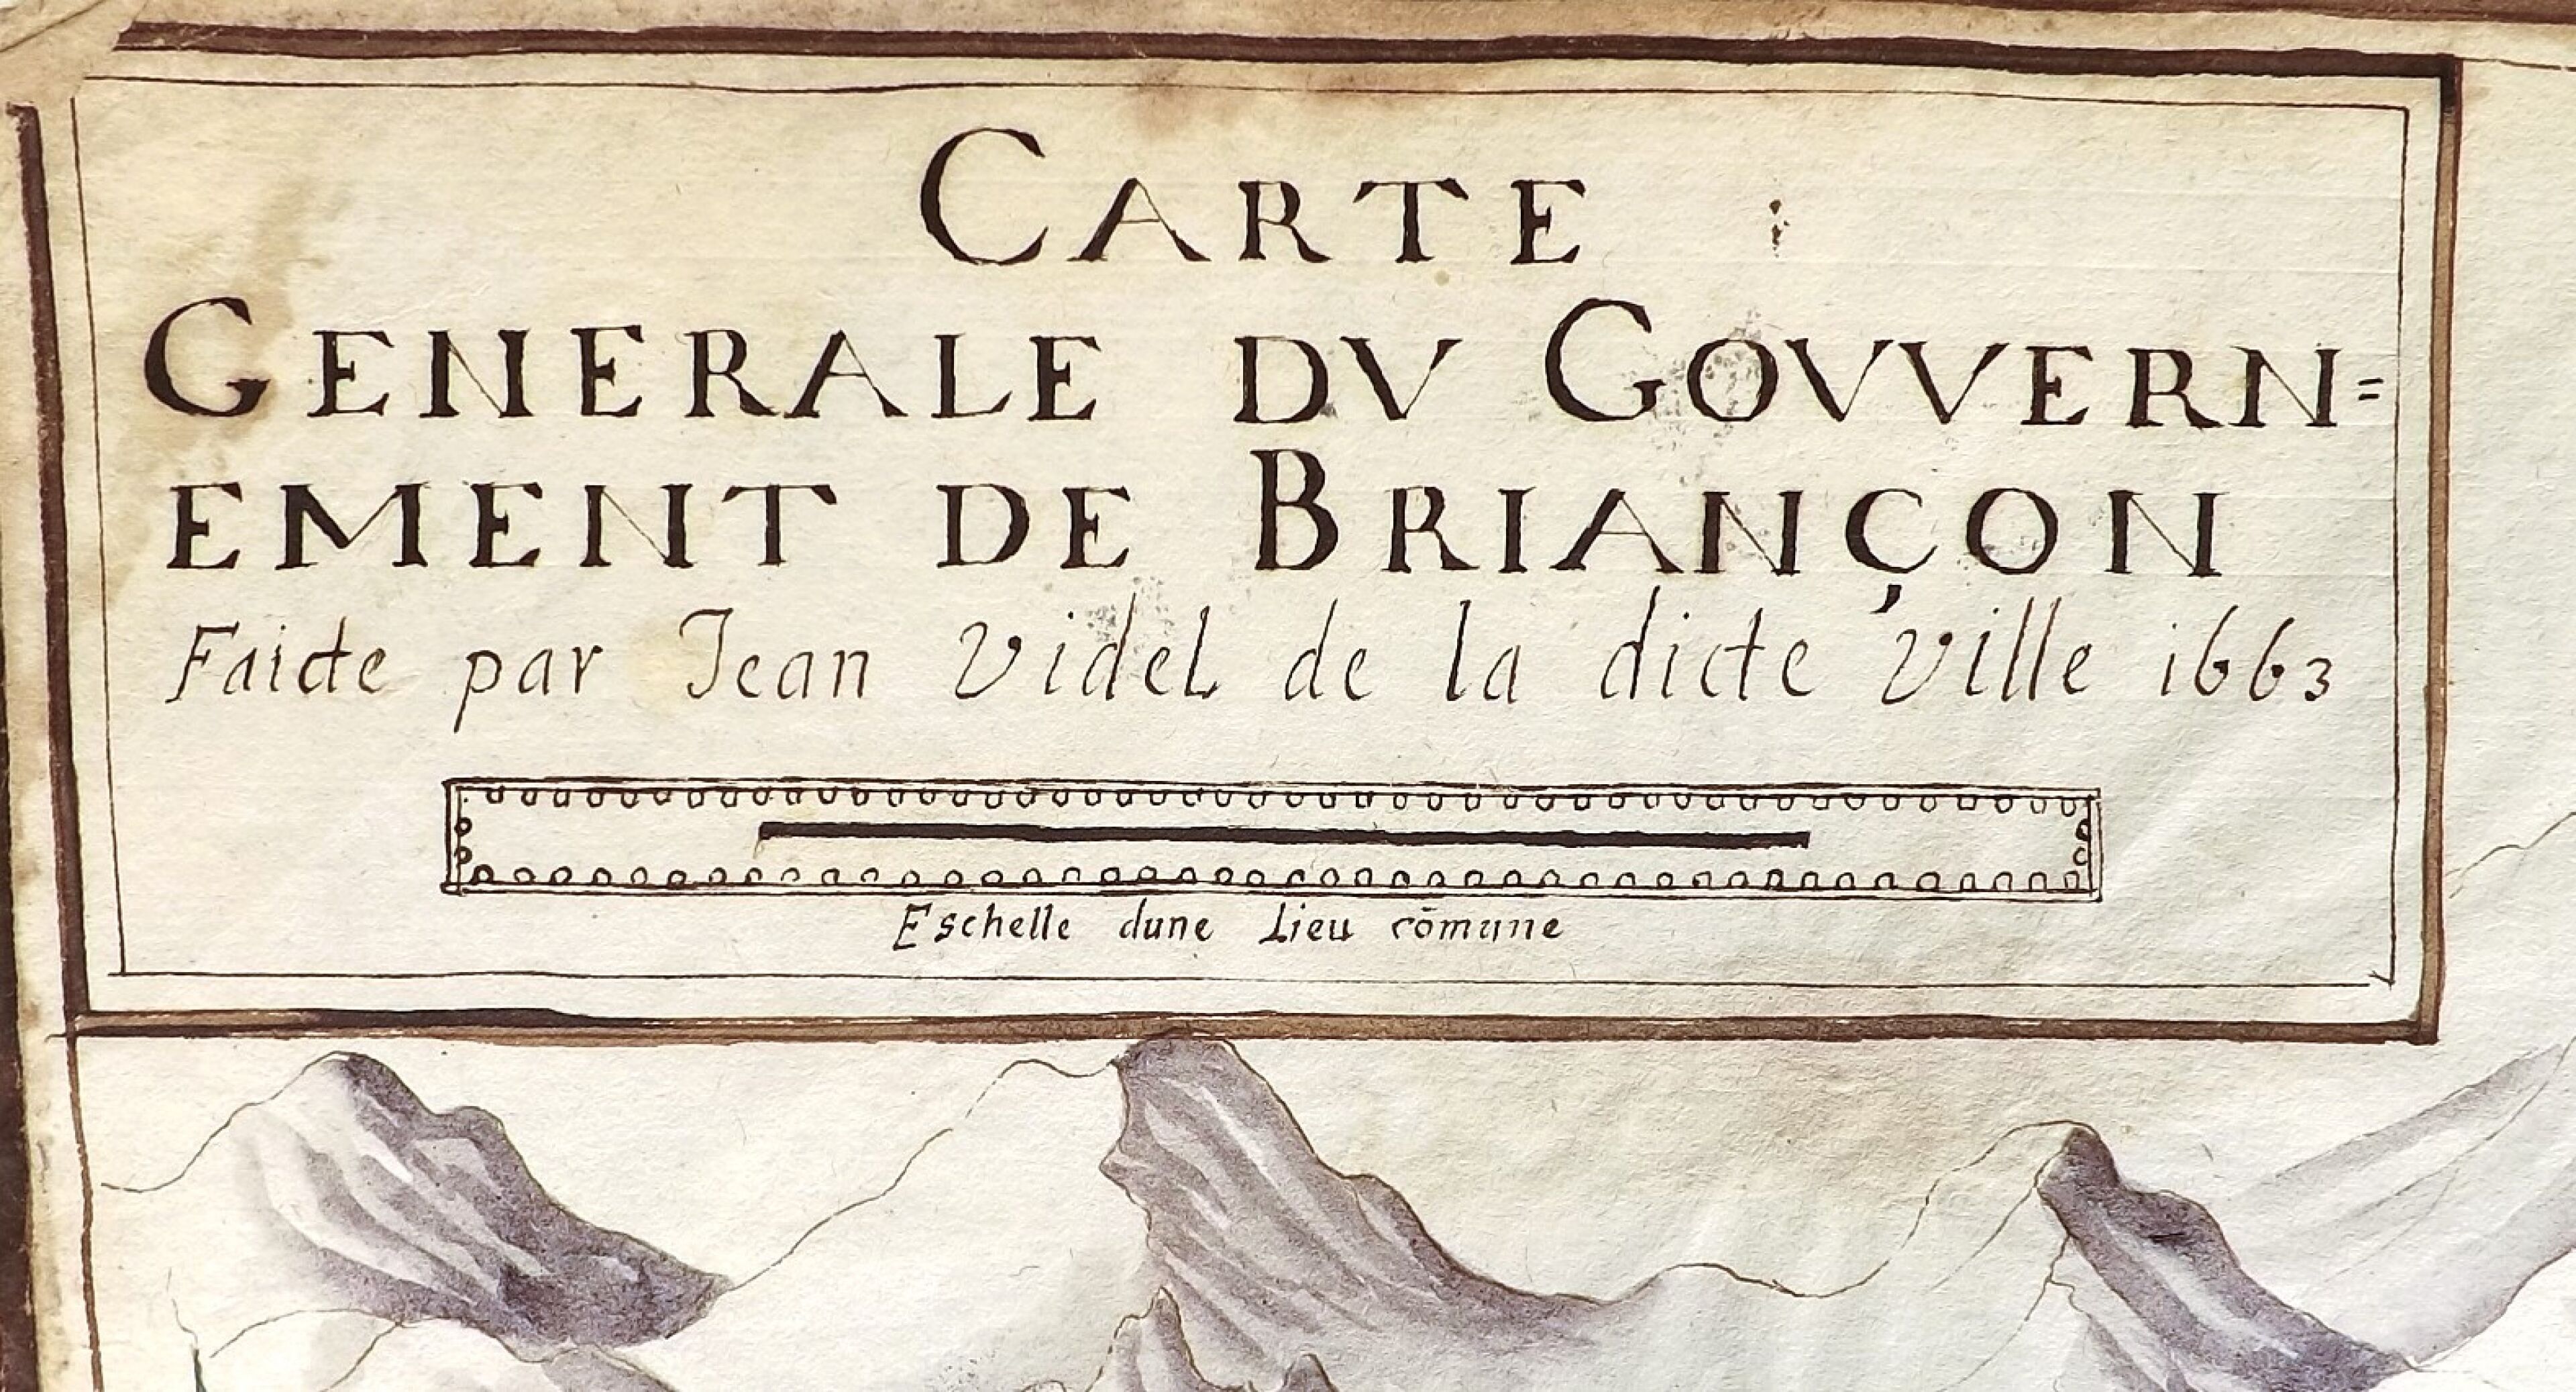 CARTE
GENERALE DV GOVVERN=
EMENT DE BRIANÇON
Faicte par Jean Videl de la dicte Ville 1663
Eschelle dune Lieu cōmune